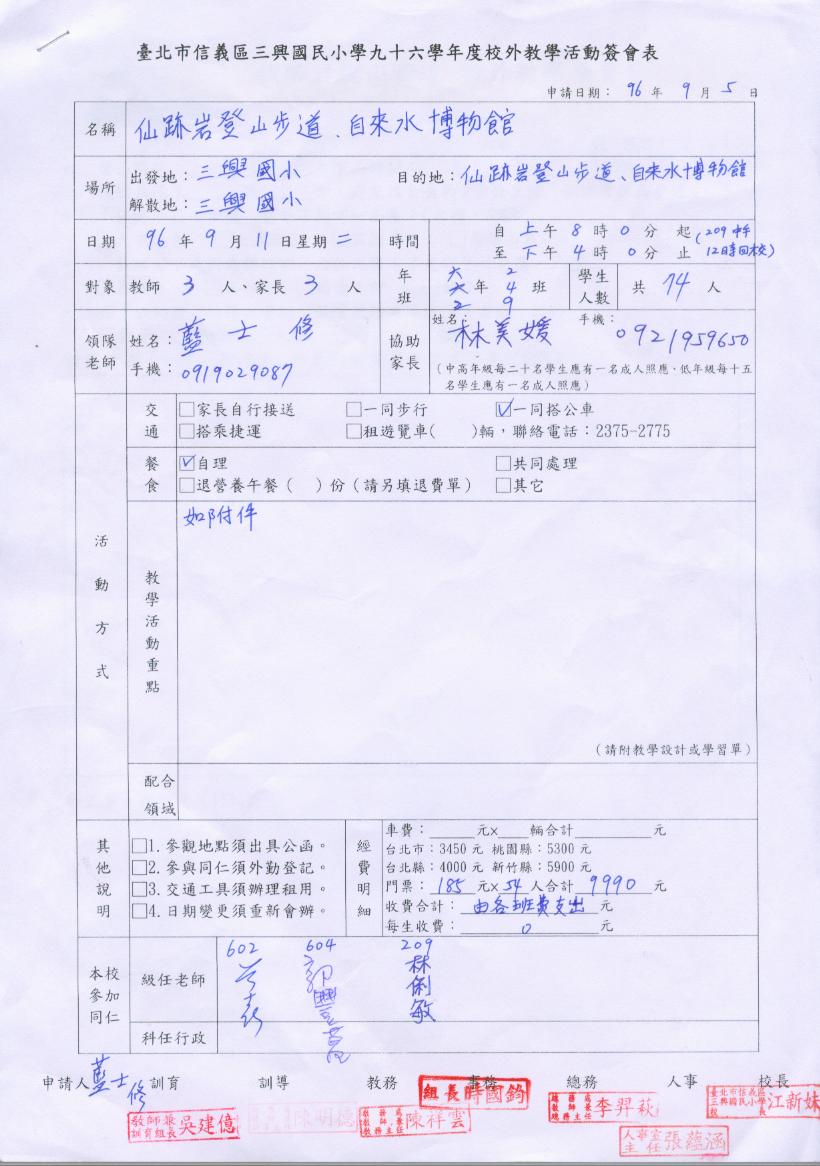 臺北市信義區三興國民小學九十六學年度校外教學活動簽會表
申請日期： 96 年 9 月 5 日
名稱 仙跡岩登山步道、自來水博物館
場所 出發地：三興國小 目的地：仙跡岩登山步道、自來水博物館
解散地：三興國小
日期 96 年 9 月 11 日星期 二 時間 自 上午 8 時 0 分 起 (209 中午
至 下午 4 時 0 分 止 12時回校)
對象 教師 3 人、家長 3 人 年班 六 六 二 年 2 4 9 班 學生人數 共 74 人
領隊老師 姓名：藍士修 協助家長 姓名：林美媛 手機：0921959650
手機：0919029087 (中高年級每二十名學生應有一名成人照應、低年級每十五
名學生應有一名成人照應)
活動方式
交通 □家長自行接送 □一同步行 ☑一同搭公車
□搭乘捷運 □租遊覽車( )輛，聯絡電話：2375-2775
餐食 ☑自理 □共同處理
□退營養午餐( )份(請另填退費單) □其它
教學活動重點 如附件
(請附教學設計或學習單)
配合領域
其他說明 經費明細
車費：______元x____輛合計________元
□1.參觀地點須出具公函。 台北市：3450 元 桃園縣：5300 元
□2.參與同仁須外勤登記。 台北縣：4000 元 新竹縣：5900 元
□3.交通工具須辦理租用。 門票： 185 元x 54 人合計 9990 元
□4.日期變更須重新會辦。 收費合計： 由各班費支出 元
每生收費： 0 元
本校參加同仁 級任老師 602 604 209
林俐敏
科任行政
申請人 藍士修 訓育 訓導 教務 事務 總務 人事 校長
教師兼訓育組長 吳建億
陳明德
教師兼教務主任 陳祥雲
組長 時國鈞
教師兼總務主任 李羿萩
人事室主任 張蘊涵
臺北市信義區三興國民小學校長 江新妹